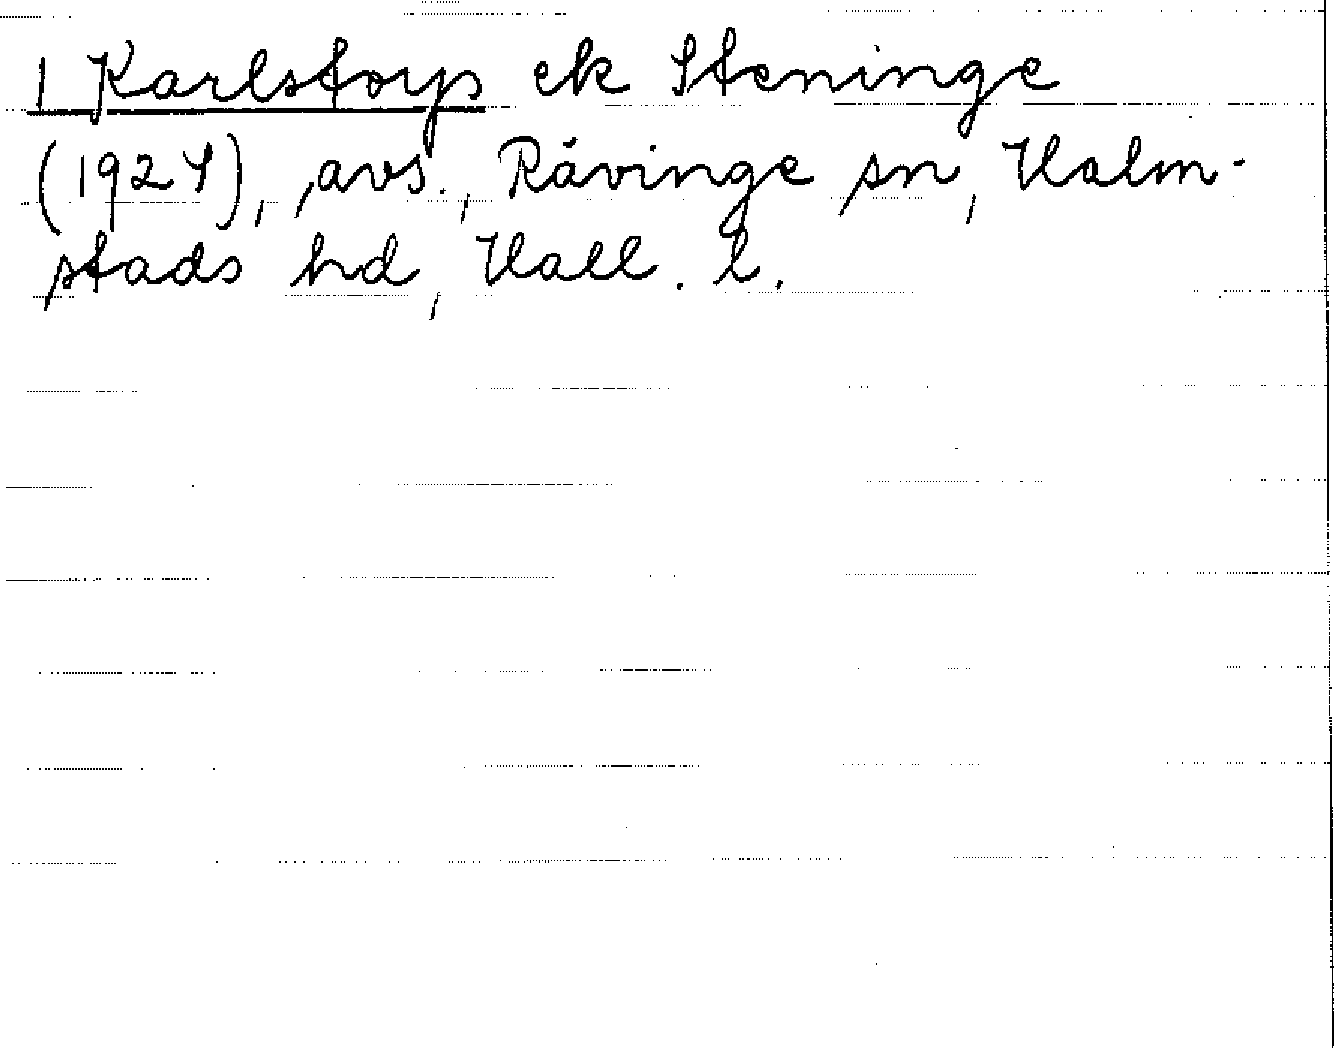 1 Karlstorps ek Steninge
(1924), avs., Rävinge sn, Halm-
stads hd, Hall. l.